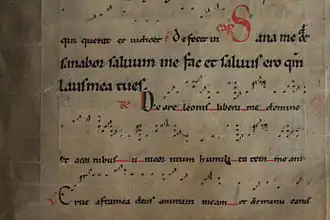 qui querit et videt Defecit in cap Sana me d
sanabor salvum me fac et salvus ero qm
laus mea tu es.
De ore leonis libera me domine
et a cornibus unicornium humilitatem meam
Erue a framea deus animam meam et de manu canis